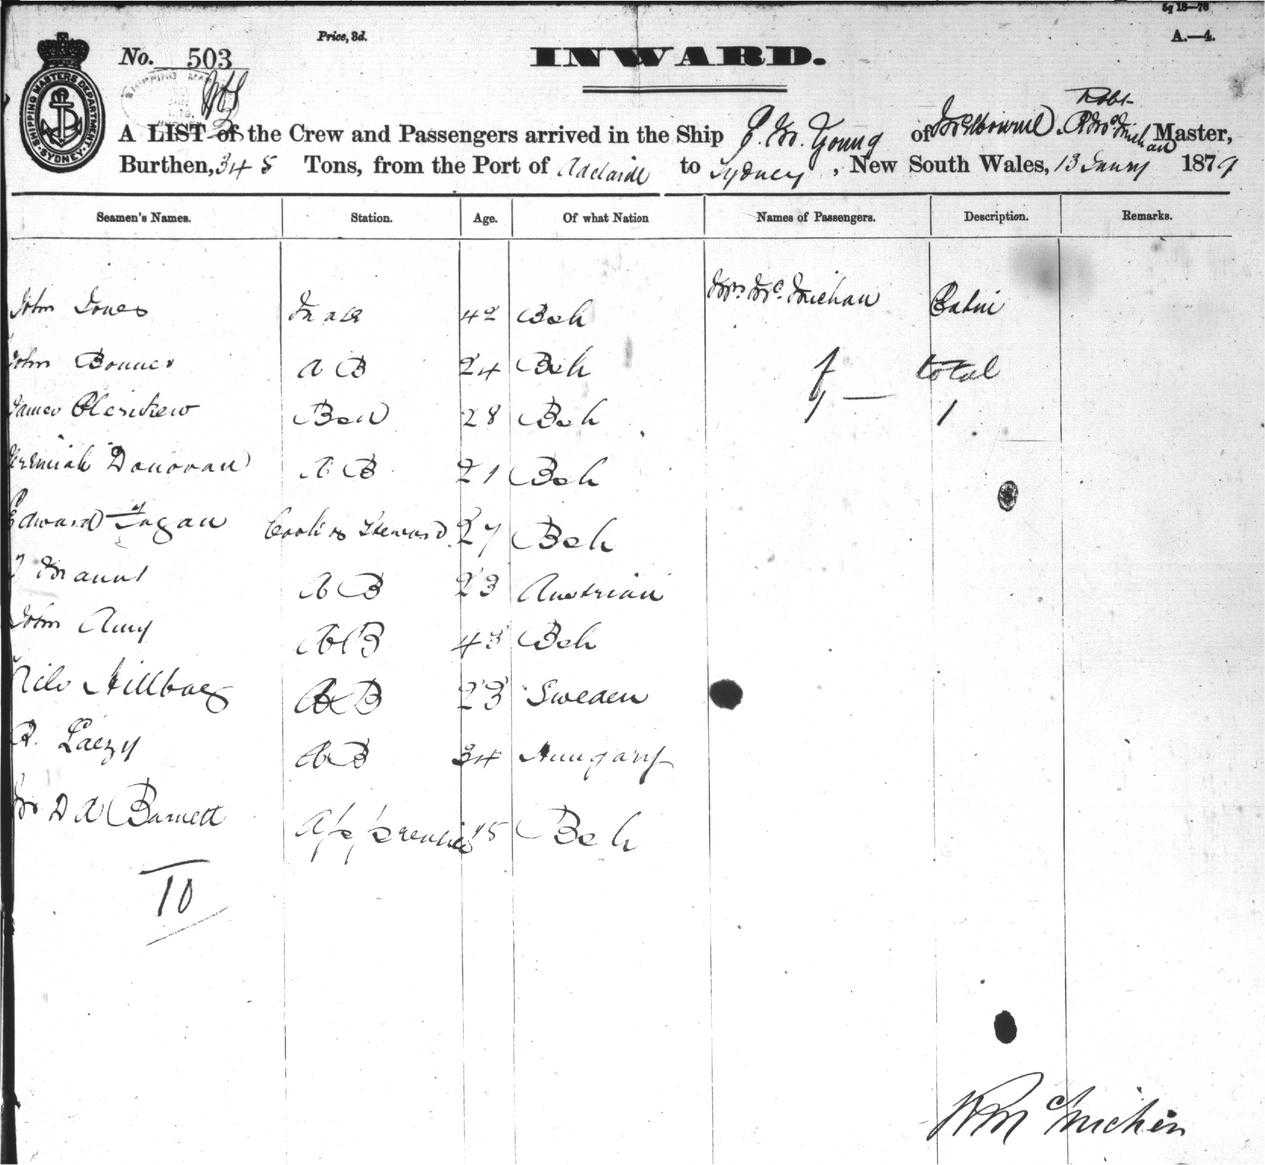 5q 18—76
Price, 3d.
A.—4.
No. 503
INWARD.
SHIPPING MASTERS DEPARTMENT SYDNEY
Robt
A LIST of the Crew and Passengers arrived in the Ship J. M. Young of Melbourne, Master,
Burthen, 345 Tons, from the Port of Adelaide to Sydney, New South Wales, 13 Jany 1879
Seamen's Names. Station. Age. Of what Nation Names of Passengers. Description. Remarks.
John Jones Mate 42 Bch Mrs Mc Michan Cabin
John Bonner A B 24 Bch total
James Bosn 28 Bch 1 — 1
Jeremiah Donovan A B 21 Bch
Edward Cook & Steward 27 Bch
A B 23 Austrian
John Amy A B 43 Bch
Nils Hillbag A B 23 Sweden
R. Laczy A B 34 Hungary
D A Barnett Apprentice 15 Bch
10
R Mc Michin